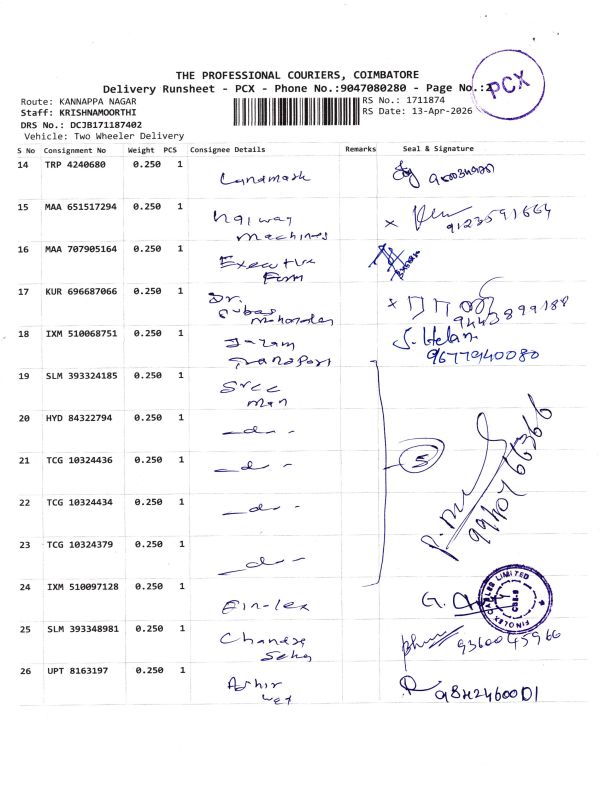 THE PROFESSIONAL COURIERS, COIMBATORE
Delivery Runsheet - PCX - Phone No.:9047080280 - Page No.:2
PCX
Route: KANNAPPA NAGAR
RS No.: 1711874
Staff: KRISHNAMOORTHI
RS Date: 13-Apr-2026
DRS No.: DCJB171187402
Vehicle: Two Wheeler Delivery
S No Consignment No Weight PCS Consignee Details Remarks Seal & Signature
14 TRP 4240680 0.250 1 Landmark
15 MAA 651517294 0.250 1
Machines 9123591664
16 MAA 707905164 0.250 1 Executive
Form
17 KUR 696687066 0.250 1 Dr.
9443899188
18 IXM 510068751 0.250 1 Jaram S. Helan
Transport 9677940080
19 SLM 393324185 0.250 1 Sree
Man
20 HYD 84322794 0.250 1 -do-
21 TCG 10324436 0.250 1 -do- 5
22 TCG 10324434 0.250 1 -do-
9940766366
23 TCG 10324379 0.250 1 -do-
24 IXM 510097128 0.250 1 Fin-lex G.
FINOLEX CABLES LIMITED
25 SLM 393348981 0.250 1 Chandra
9360045966
26 UPT 8163197 0.250 1